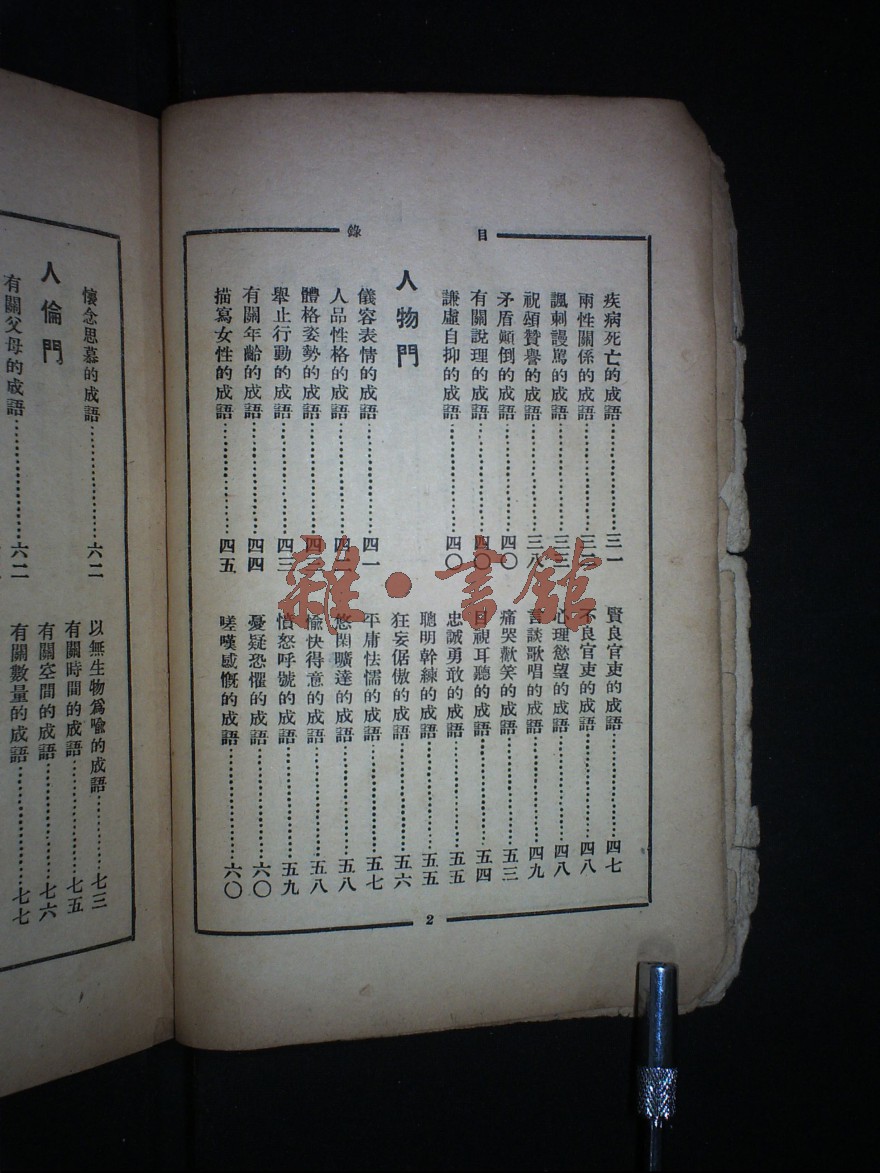 目錄
疾病死亡的成語……………三一
兩性關係的成語……………三二
諷刺謾罵的成語……………三三
祝頌贊譽的成語……………三八
矛盾顚倒的成語……………四〇
有關說理的成語……………四〇
謙虛自抑的成語……………四〇
人物門
儀容表情的成語……………四一
人品性格的成語……………四二
體格姿勢的成語……………四三
舉止行動的成語……………四三
有關年齡的成語……………四四
描寫女性的成語……………四五
賢良官吏的成語……………四七
不良官吏的成語……………四八
心理慾望的成語……………四八
言談歌唱的成語……………四九
痛哭歡笑的成語……………五三
目視耳聽的成語……………五四
忠誠勇敢的成語……………五五
聰明幹練的成語……………五五
狂妄倨傲的成語……………五六
平庸怯懦的成語……………五七
悠閑曠達的成語……………五八
愉快得意的成語……………五八
憤怒呼號的成語……………五九
憂疑恐懼的成語……………六〇
嗟嘆感慨的成語……………六〇
2
懷念思慕的成語……………六二
人倫門
有關父母的成語……………六二
以無生物爲喩的成語…………七三
有關時間的成語……………七五
有關空間的成語……………七六
有關數量的成語……………七七
雜·書館